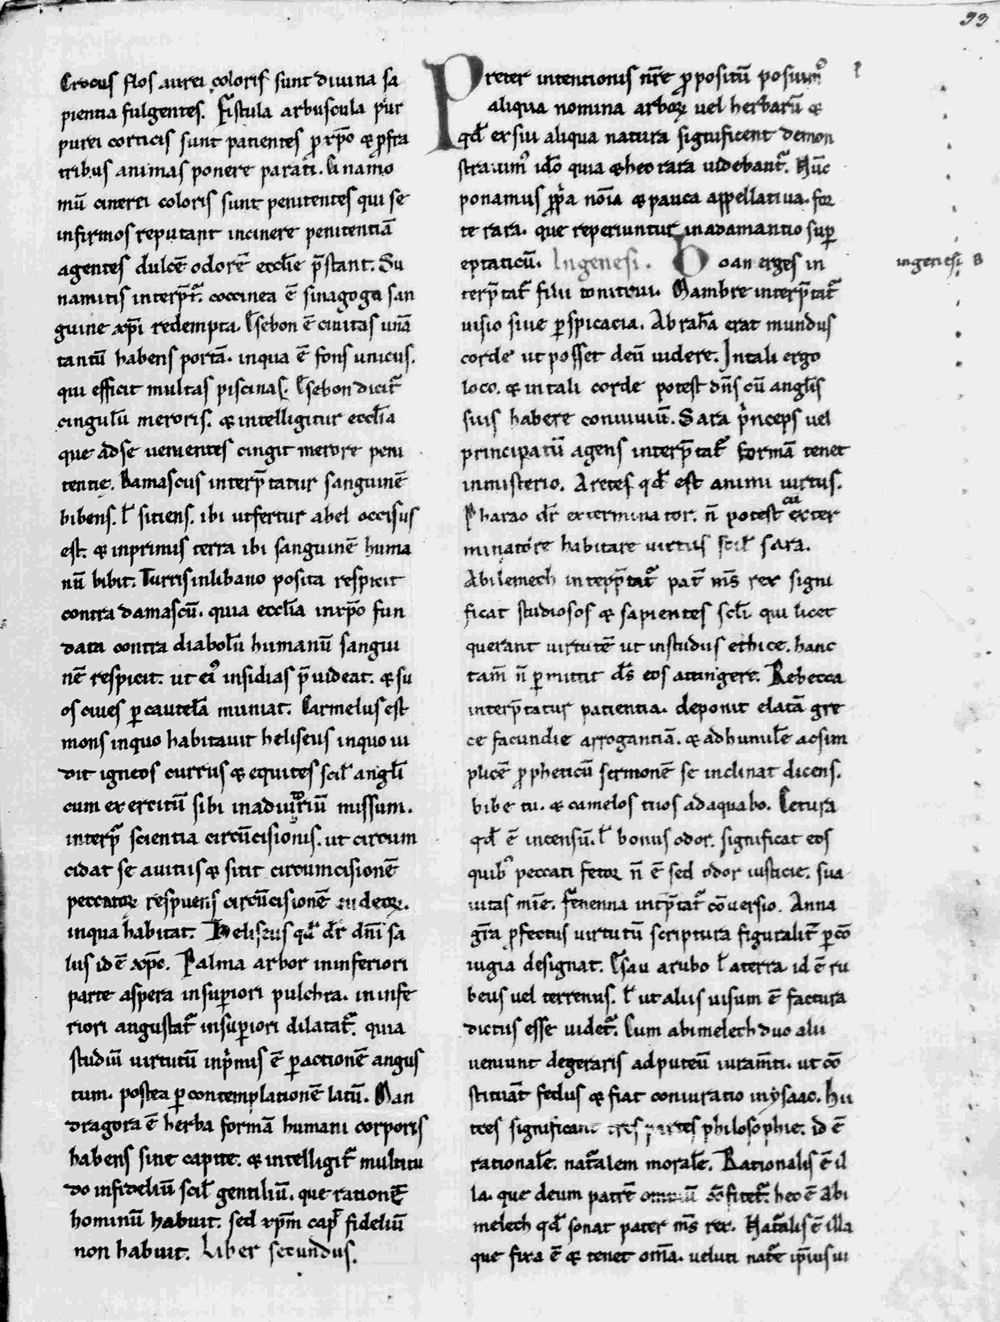 93
Crocus flos aurei coloris sunt divina sa
pientia fulgentes. Fistula arbuscula pur
purei corticis sunt patientes ꝓ xp̄o & ꝓ fra
tribus animas ponere parati. Cinamo
mū cinerei coloris sunt penitentes qui se
infirmos reputant in cinere penitentiā
agentes dulcē odorē eccl̄ie p̄stant. Su
namitis interp̄t̄. coccinea ē sinagoga san
guine xp̄i redempta. Esebon ē civitas unā
tantū habens portā. in qua ē fons unicus.
qui efficit multas piscinas. Esebon dicit̄
cingulū meroris. & intelligitur eccl̄ia
que ad se venientes cingit merore peni
tentie. Damascus interp̄tatur sanguinē
bibens. ł sitiens. ibi ut fertur abel occisus
est. & inprimis terra ibi sanguinē huma
nū bibit. Turris in libano posita respicit
contra damascū. quia eccl̄ia in xp̄o fun
data contra diabolū humanū sangui
nē respicit. ut ei᾽ insidias p̄videat. & su
os cives ꝑ cautelā muniat. Carmelus est
mons in quo habitavit heliseus in quo vi
dit igneos currus & equites scil̄ angl̄i
cum exercitū sibi in adiutoriū missum.
interp̄ scientia circūcisionis. ut circum
cidat se a vitiis & sitit circumcisionē
peccatoꝝ respuens circūcisionē iudeoꝝ.
in qua habitat. Heliseus qd̄ dr̄ dn̄i sa
lus id ē xp̄c. Palma arbor in inferiori
parte aspera in supiori pulchra. in infe
riori angustat̄ in supiori dilatat̄. quia
studiū virtutū inp̄mis ē ꝑ actionē angus
tum. postea ꝑ contemplationē latū. Man
dragora ē herba formā humani corporis
habens sine capite. & intelligit̄ multitu
do infideliū scil̄ gentiliū. que rationē
hominū habuit. sed xp̄m cap̄ fideliū
non habuit. Liber secundus.
Preter intentionis nr̄e ꝓpositū posuim᾽
aliqua nomina arboꝝ vel herbarū &
qd̄ ex sui aliqua natura significent demon
stravim᾽ id̄o quia & hec rara videbant̄. Nūc
ponamus ꝓp̄a nōia & pauca appellativa. for
te rara. que reperiuntur in adamantio sup
eptaticū. In genesi. Boanerges in
terp̄tat̄ filii tonitrui. Mambre interp̄tat̄
visio sive ꝑspicacia. Abrahā erat mundus
corde ut posset deū videre. In tali ergo
loco. & in tali corde potest dn̄s cū angl̄is
suis habere conviviū. Sara p̄nceps vel
principatū agens interp̄tat̄ formā tenet
in misterio. Aretes qd̄ est animi virtus.
Pharao dr̄ exterminator. n̄ potest cū exter
minatore habitare virtus scil̄ sara.
Abilemech interp̄tat̄ pat̄ m̄s rex signi
ficat studiosos & sapientes scl̄i qui licet
querant virtutē ut in studiis ethice. hanc
tam̄ n̄ ꝑmittit d̄s eos attingere. Rebecca
interp̄tatur patientia. deponit elatā gre
ce facundie arrogantiā. & ad humilē ac sim
plicē ꝓpheticū sermonē se inclinat dicens.
bibe tu. & camelos tuos adaquabo. Cetura
qd̄ ē incensū. ł bonus odor. significat eos
quib᾽ peccati fetor n̄ ē sed odor iusticie. sua
vitas mīe. Fenenna intp̄tat̄ cōversio. Anna
gr̄a ꝓfectus virtutū scriptura figuralit̄ ꝑ cō
iugia designat. Esau a rubo ł a terra id ē ru
beus vel terrenus. ł ut aliis visum ē factura
dictus esse videt̄. Cum abimelech duo alii
veniunt de geraris ad puteū iuram̄ti. ut cō
stituāt fedus & fiat coniuratio in ysaac. Hii
tres significant tres partes philosophie. id ē
rationalē. nat̄alem moralē. Rationalis ē il
la. que deum patrē omniū cōfitet̄. hec ē Abi
melech qd̄ sonat pater m̄s rex. Nat̄alis ē illa
que fixa ē & tenet om̄a. veluti nat̄e ip̄ius vi
in genesi B